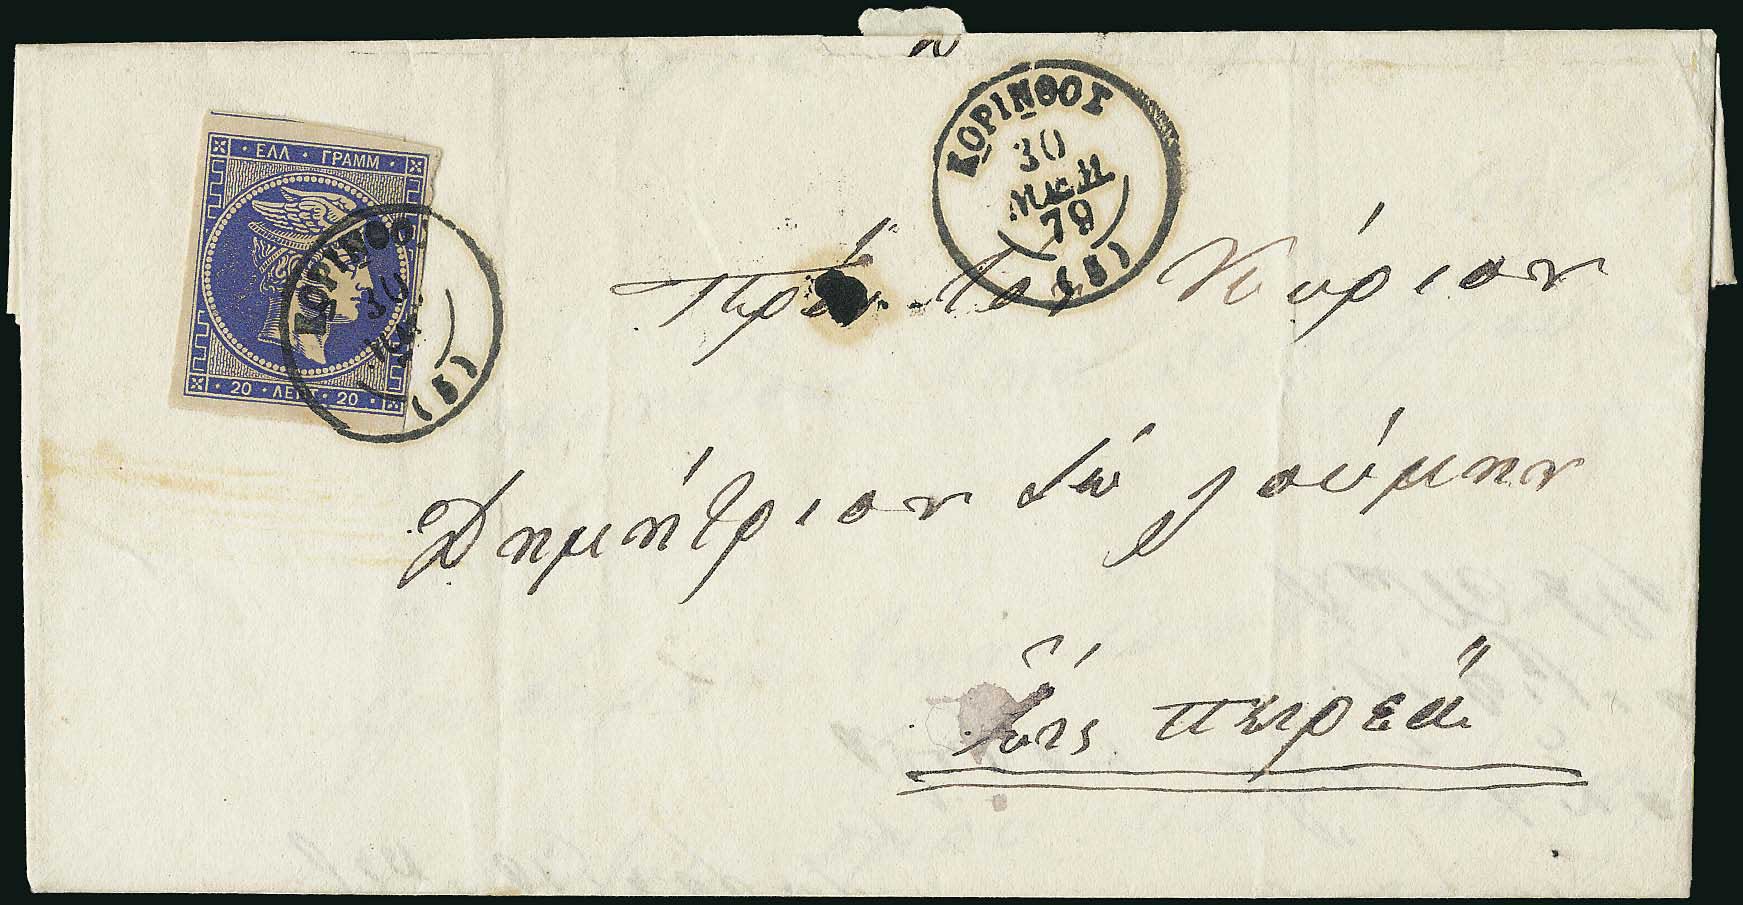 ΕΛΛ · ΓΡΑΜΜ
20 · ΛΕΠΤ · 20
ΚΟΡΙΝΘΟΣ
30
(8)
ΚΟΡΙΝΘΟΣ
30
ΜΑΪ
79
(8)
Πρὸς τον Κύριον
Δημήτριον
Εἰς Πειρεά